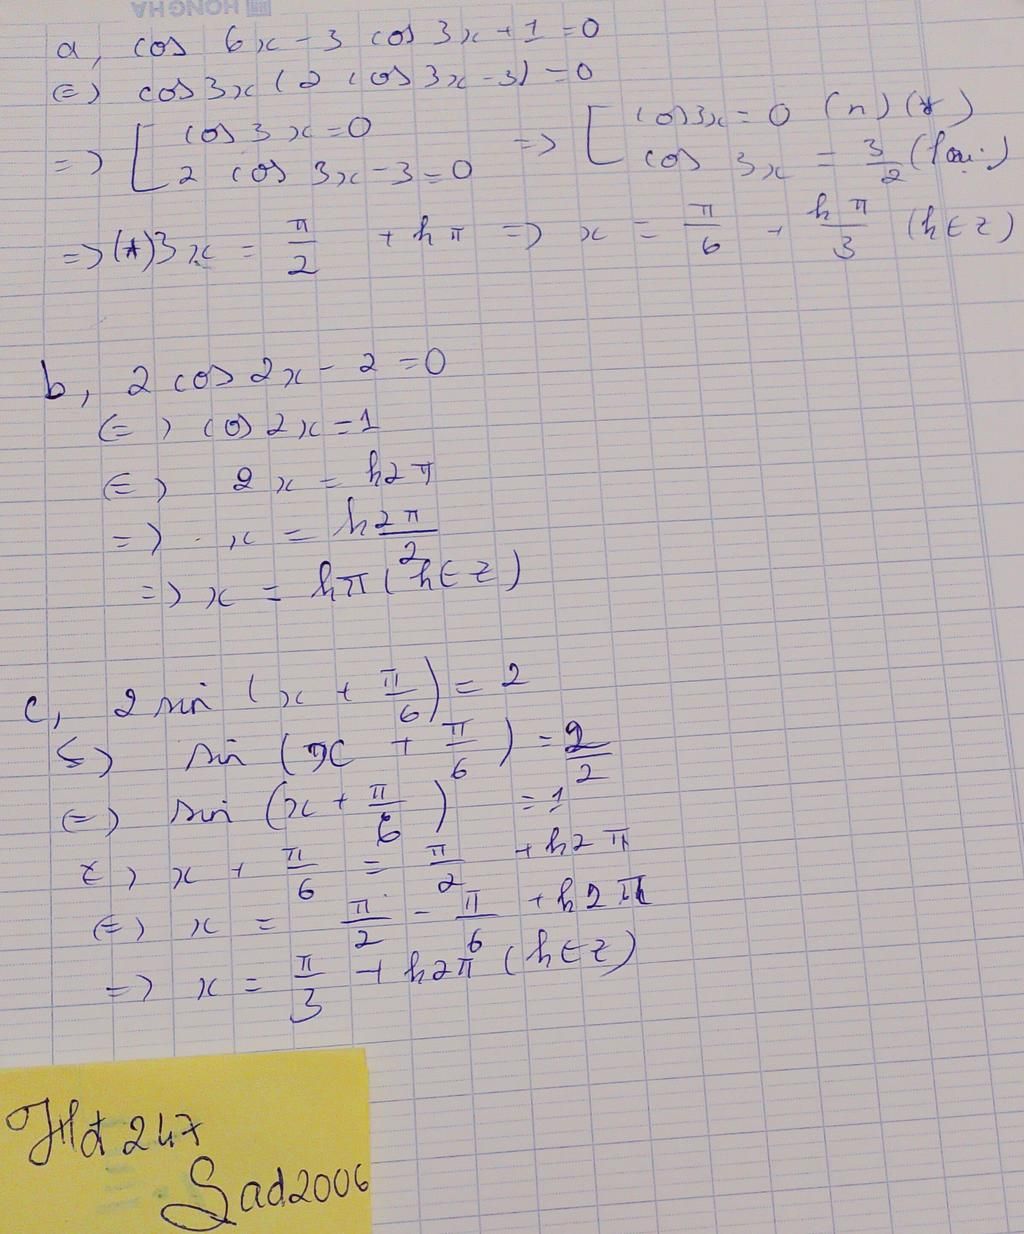 HONG HA
a, cos 6x - 3 cos 3x + 1 = 0
(=) cos 3x (2 cos 3x - 3) = 0
=> [ cos 3x = 0 => [ cos 3x = 0 (n) (*)
2 cos 3x - 3 = 0 cos 3x = 3/2 (loại)
=> (*) 3x = π/2 + kπ => x = π/6 + kπ/3 (k ∈ z)
b, 2 cos 2x - 2 = 0
(=) cos 2x = 1
(=) 2x = k2π
=> x = k2π/2
=> x = kπ (k ∈ z)
c, 2 sin (x + π/6) = 2
(=) sin (x + π/6) = 2/2
(=) sin (x + π/6) = 1
(=) x + π/6 = π/2 + k2π
(=) x = π/2 - π/6 + k2π
=> x = π/3 + k2π (k ∈ z)
Hd 247
Sad2006